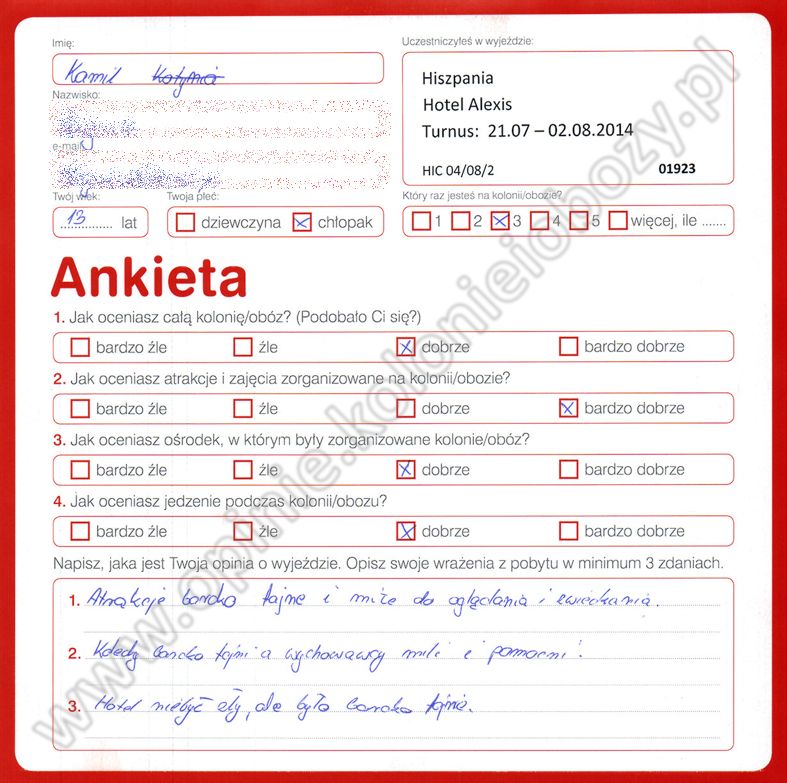 Imię:
Uczestniczyłeś w wyjeździe:
Kamil
Hiszpania
Hotel Alexis
Turnus: 21.07 – 02.08.2014
HIC 04/08/2 01923
Nazwisko:
e-mail:
Twój wiek: Twoja płeć: Który raz jesteś na kolonii/obozie?
13 lat dziewczyna chłopak 1 2 3 4 5 więcej, ile .......
Ankieta
1. Jak oceniasz całą kolonię/obóz? (Podobało Ci się?)
bardzo źle źle dobrze bardzo dobrze
2. Jak oceniasz atrakcje i zajęcia zorganizowane na kolonii/obozie?
bardzo źle źle dobrze bardzo dobrze
3. Jak oceniasz ośrodek, w którym były zorganizowane kolonie/obóz?
bardzo źle źle dobrze bardzo dobrze
4. Jak oceniasz jedzenie podczas kolonii/obozu?
bardzo źle źle dobrze bardzo dobrze
Napisz, jaka jest Twoja opinia o wyjeździe. Opisz swoje wrażenia z pobytu w minimum 3 zdaniach.
1. Atrakcje bardzo fajne i do oglądania i zwiedzania.
2. bardzo fajni a wychowawcy mili i pomocni.
3. Hotel zły, ale było bardzo fajnie.
www.opinie.kolonieiobozy.pl